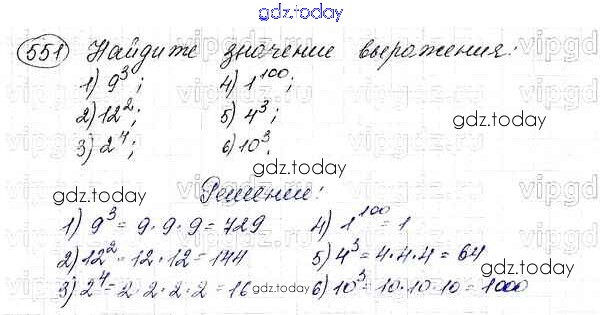 gdz.today
551 Найдите значение выражения:
1) 9³; 4) 1¹⁰⁰;
2) 12²; 5) 4³;
3) 2⁴; 6) 10³.
gdz.today
gdz.today
Решение:
gdz.today
1) 9³ = 9·9·9 = 729 4) 1¹⁰⁰ = 1
2) 12² = 12·12 = 144 5) 4³ = 4·4·4 = 64
3) 2⁴ = 2·2·2·2 = 16 6) 10³ = 10·10·10 = 1000
gdz.today
gdz.today